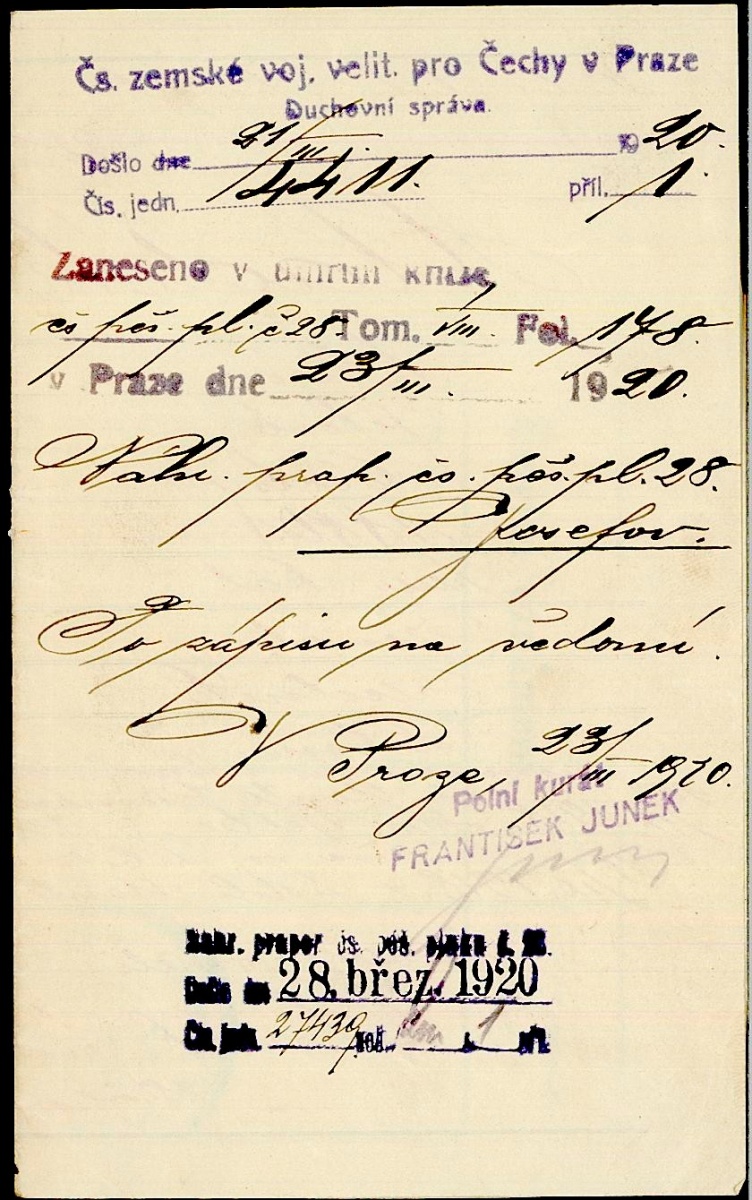 Čs. zemské voj. velit. pro Čechy v Praze
Duchovní správa.
Došlo dne 21/III. 1920.
Čís. jedn. 4411. příl. 1.
Zaneseno v úmrtní knize
čs pěš. pl. č 28. Tom. VIII. Fol. 178.
v Praze dne 23/III. 1920.
Náhr. prap. čs. pěš. pl. 28.
Josefov.
Po zápisu na vědomí.
V Praze, 23/III 1920.
Polní kurát
FRANTIŠEK JUNEK
Náhr. prapor čs. pěš. pluku č. 28.
Došlo dne 28. břez. 1920
Čís. jedn. 27439 1 příl.